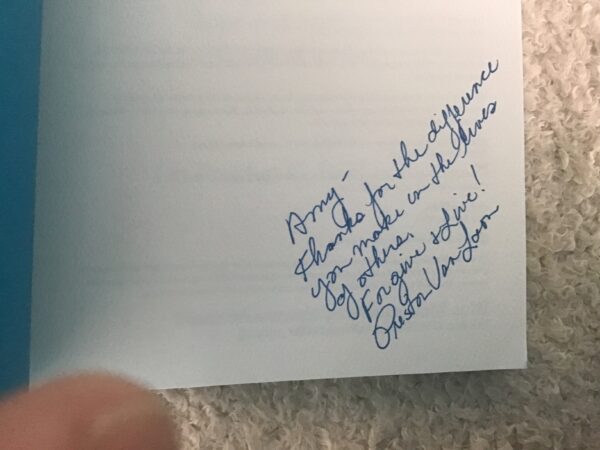 Amy-
thanks for the difference
you make in the lives
of others.
Forgive & Live!
Preston Van Loon